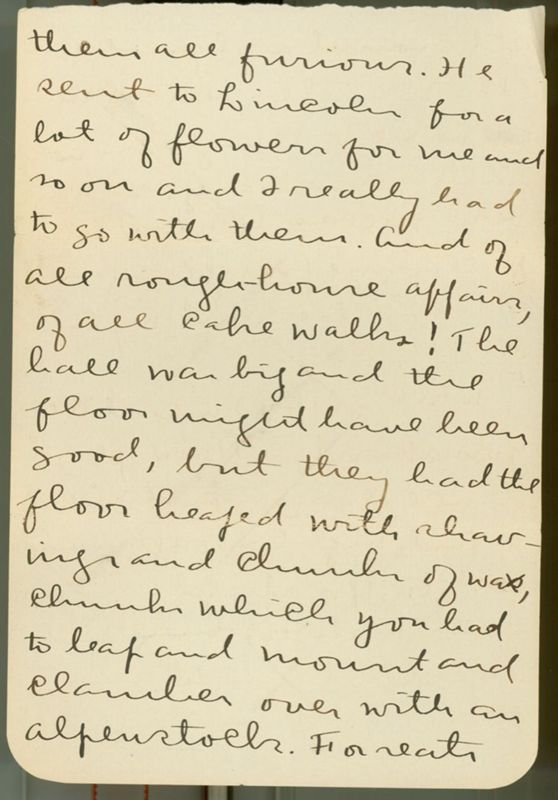 them all furious. He
sent to Lincoln for a
lot of flowers for me and
so on and I really had
to go with them. And of
all rough-house affairs,
of all cake walks! The
hall was big and the
floor might have been
good, but they had the
floor heaped with shav-
ings and chunks of wax,
chunks which you had
to leap and mount and
clamber over with an
alpenstock. For seats